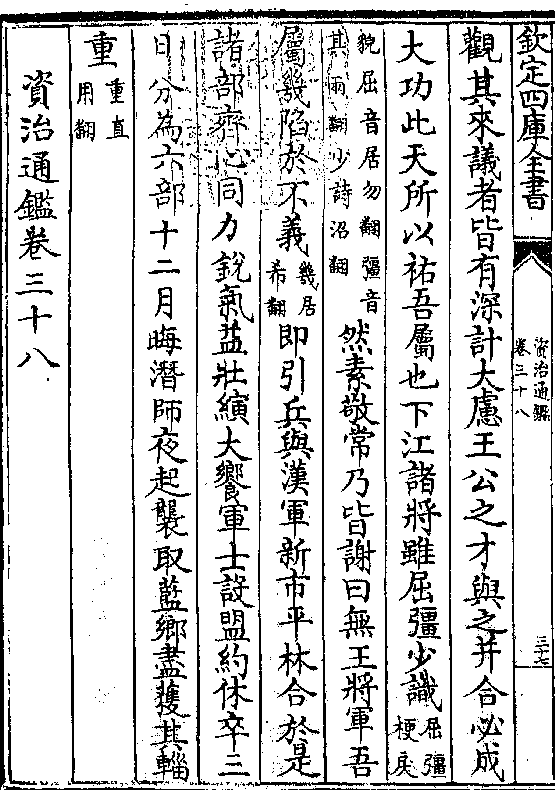 欽定四庫全書
資治通鑑
卷三十八
三十七
觀其來議者皆有深計大慮王公之才與之并合必成
大功此天所以祐吾屬也下江諸將雖屈彊少識屈彊梗戾
貌屈音居勿翻彊音其兩翻少詩沼翻然素敬常乃皆謝曰無王將軍吾
屬幾陷於不義幾居希翻即引兵與漢軍新市平林合於是
諸部齊心同力銳氣益壯縯大饗軍士設盟約休卒三
日分為六部十二月晦潛師夜起襲取藍鄉盡獲其輜
重重直用翻
資治通鑑卷三十八